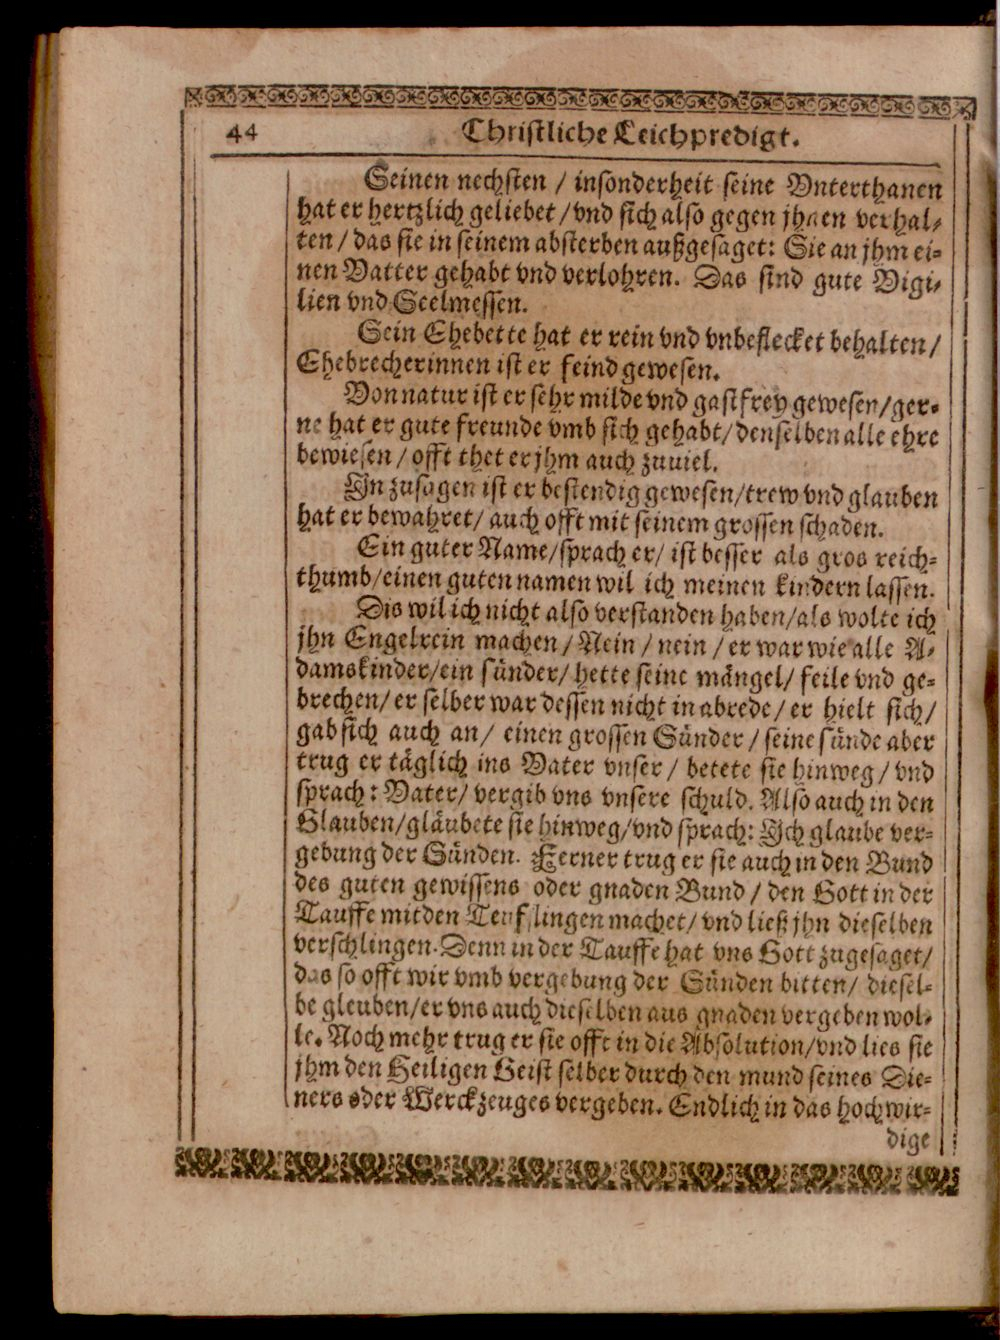 44 Christliche Leichpredigt.
Seinen nechsten / insonderheit seine Vnterthanen
hat er hertzlich geliebet / vnd sich also gegen jhnen verhal-
ten / das sie in seinem absterben außgesaget: Sie an jhm ei-
nen Vatter gehabt vnd verlohren. Das sind gute Vigi-
lien vnd Seelmessen.
Sein Ehebette hat er rein vnd vnbeflecket behalten /
Ehebrecherinnen ist er feind gewesen.
Von natur ist er sehr milde vnd gastfrey gewesen / ger-
ne hat er gute freunde vmb sich gehabt / denselben alle ehre
bewiesen / offt thet er jhm auch zuuiel.
Jn zusagen ist er bestendig gewesen / trew vnd glauben
hat er bewahret / auch offt mit seinem grossen schaden.
Ein guter Name / sprach er / ist besser als gros reich-
thumb / einen guten namen wil ich meinen kindern lassen.
Dis wil ich nicht also verstanden haben / als wolte ich
jhn Engelrein machen / Nein / nein / er war wie alle A-
damskinder / ein sünder / hette seine mängel / feile vnd ge-
brechen / er selber war dessen nicht in abrede / er hielt sich /
gab sich auch an / einen grossen Sünder / seine sünde aber
trug er täglich ins Vater vnser / betete sie hinweg / vnd
sprach: Vater / vergib vns vnsere schuld. Also auch in den
Glauben / gläubete sie hinweg / vnd sprach: Jch glaube ver-
gebung der Sünden. Ferner trug er sie auch in den Bund
des guten gewissens oder gnaden Bund / den Gott in der
Tauffe mit den Teuflingen machet / vnd ließ jhn dieselben
verschlingen. Denn in der Tauffe hat vns Gott zugesaget /
das so offt wir vmb vergebung der Sünden bitten / diesel-
be gleuben / er vns auch dieselben aus gnaden vergeben wol-
le. Noch mehr trug er sie offt in die Absolution / vnd lies sie
jhm den Heiligen Geist selber durch den mund seines Die-
ners oder Werckzeuges vergeben. Endlich in das hochwir-
dige